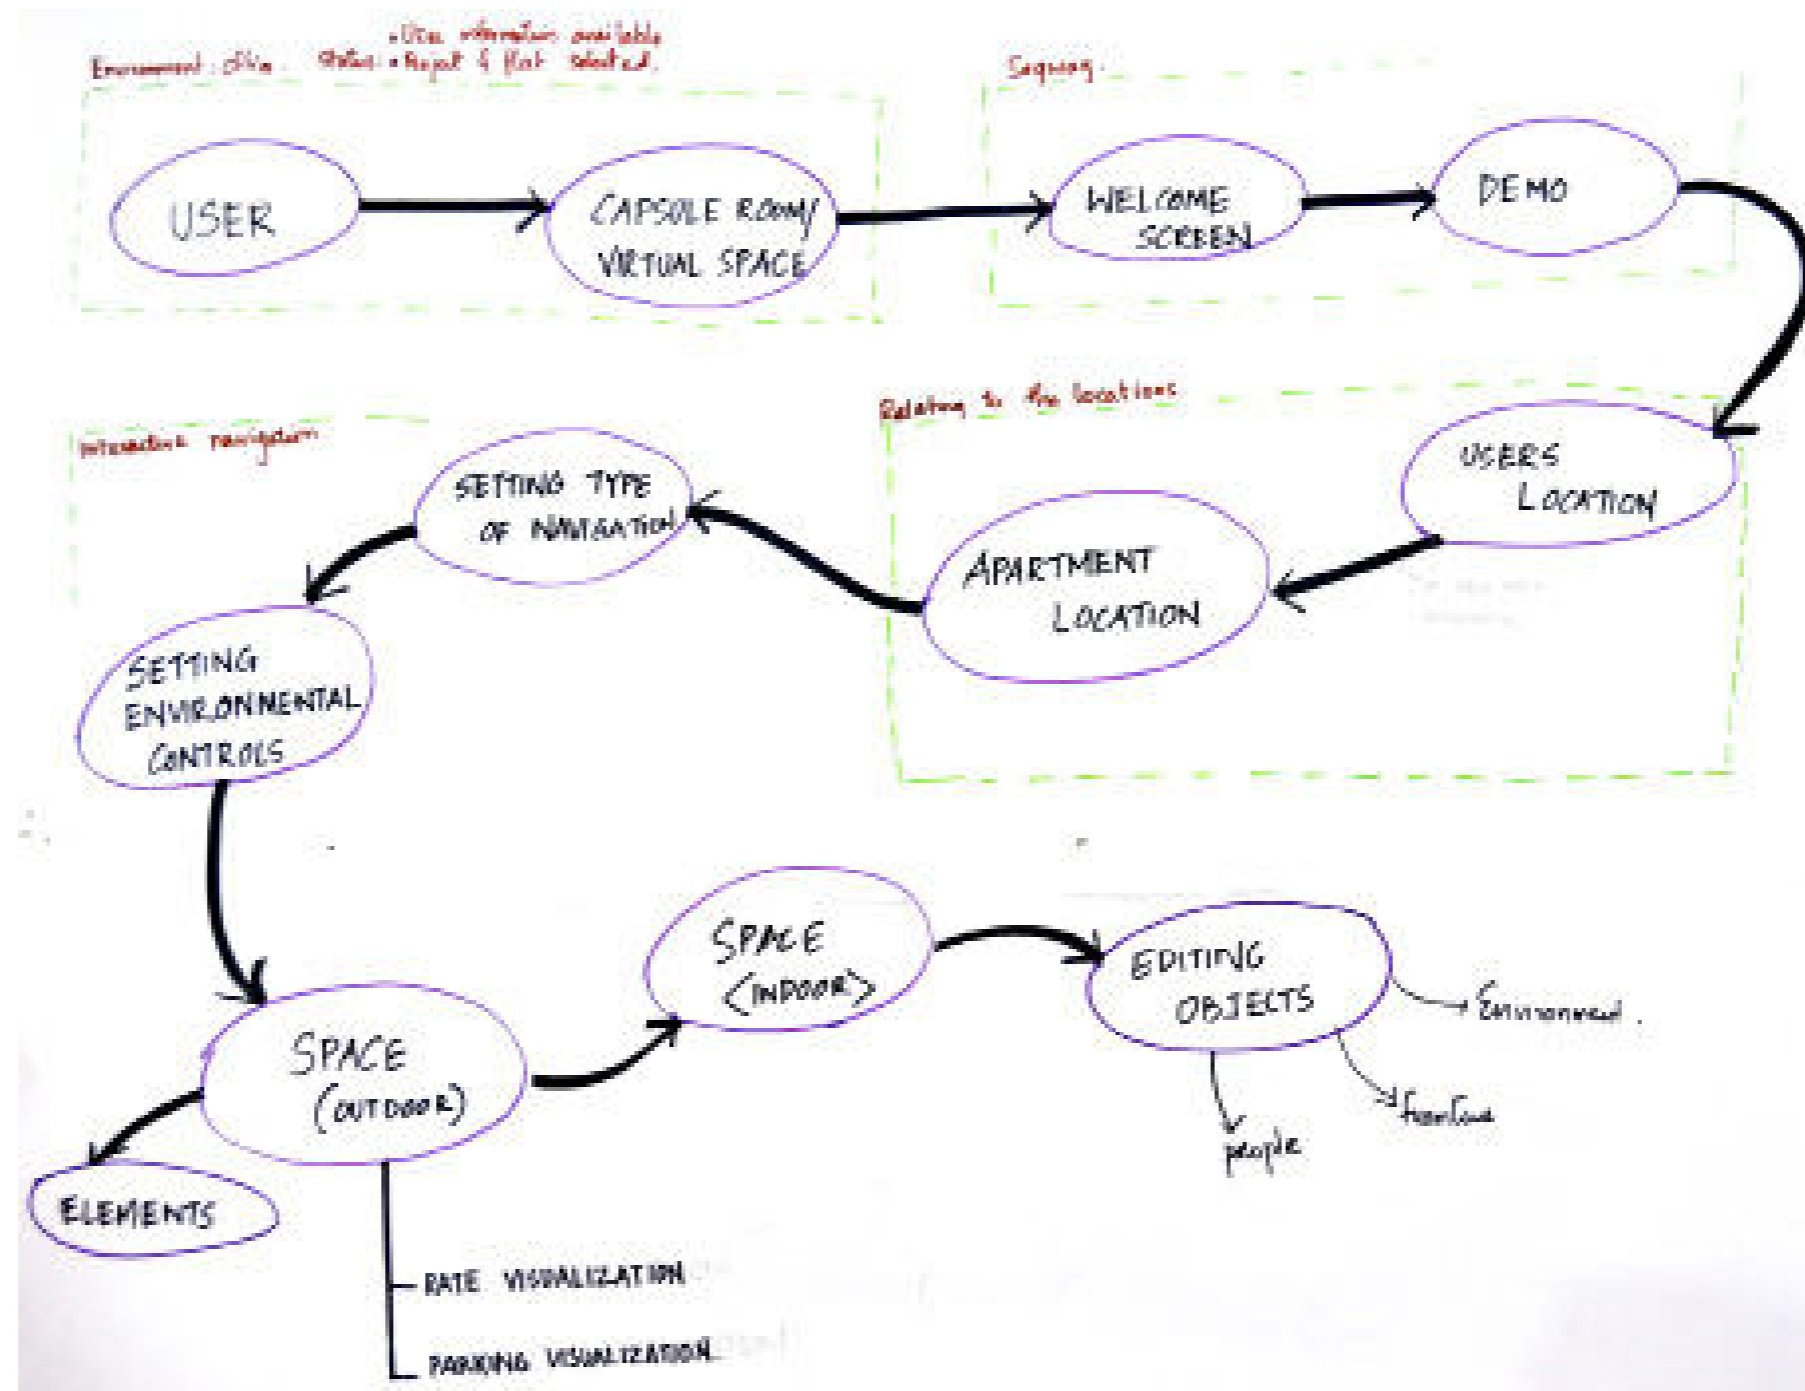 • User information available
Environment: office Status: • Project & flat selected.
USER
CAPSOLE ROOM/
VIRTUAL SPACE
WELCOME
SCREEN
DEMO
Relating to the locations
USERS
LOCATION
APARTMENT
LOCATION
Interactive navigation
SETTING TYPE
OF NAVIGATION
SETTING
ENVIRONMENTAL
CONTROLS
SPACE
(OUTDOOR)
ELEMENTS
RATE VISUALIZATION
PARKING VISUALIZATION
SPACE
<INDOOR>
EDITING
OBJECTS
Environment.
people